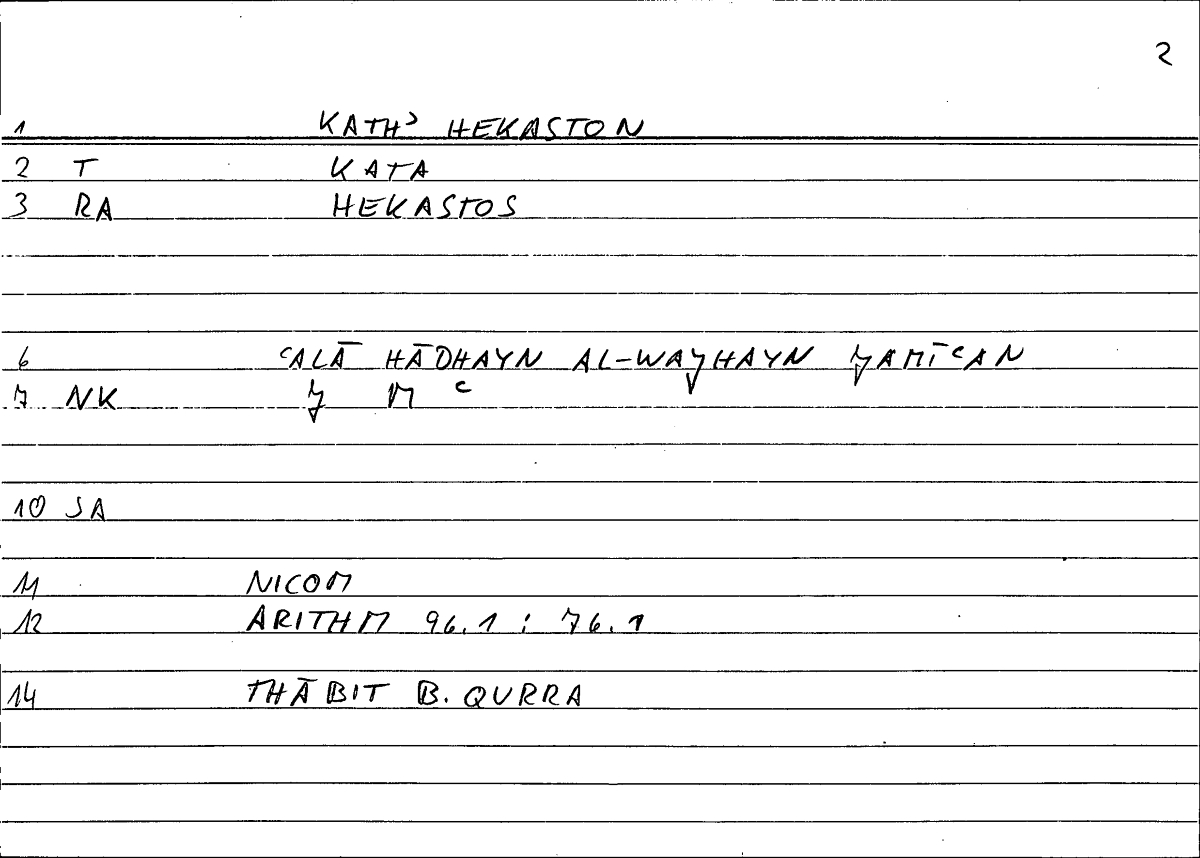 2
1 KATHʾ HEKASTON
2 T KATA
3 RA HEKASTOS
6 ʿALĀ HĀDHAYN AL-WAJHAYN JAMĪʿAN
7 NK J M ʿ
10 SA
11 NICOM
12 ARITHM 96.1 : 76.1
14 THĀBIT B. QURRA